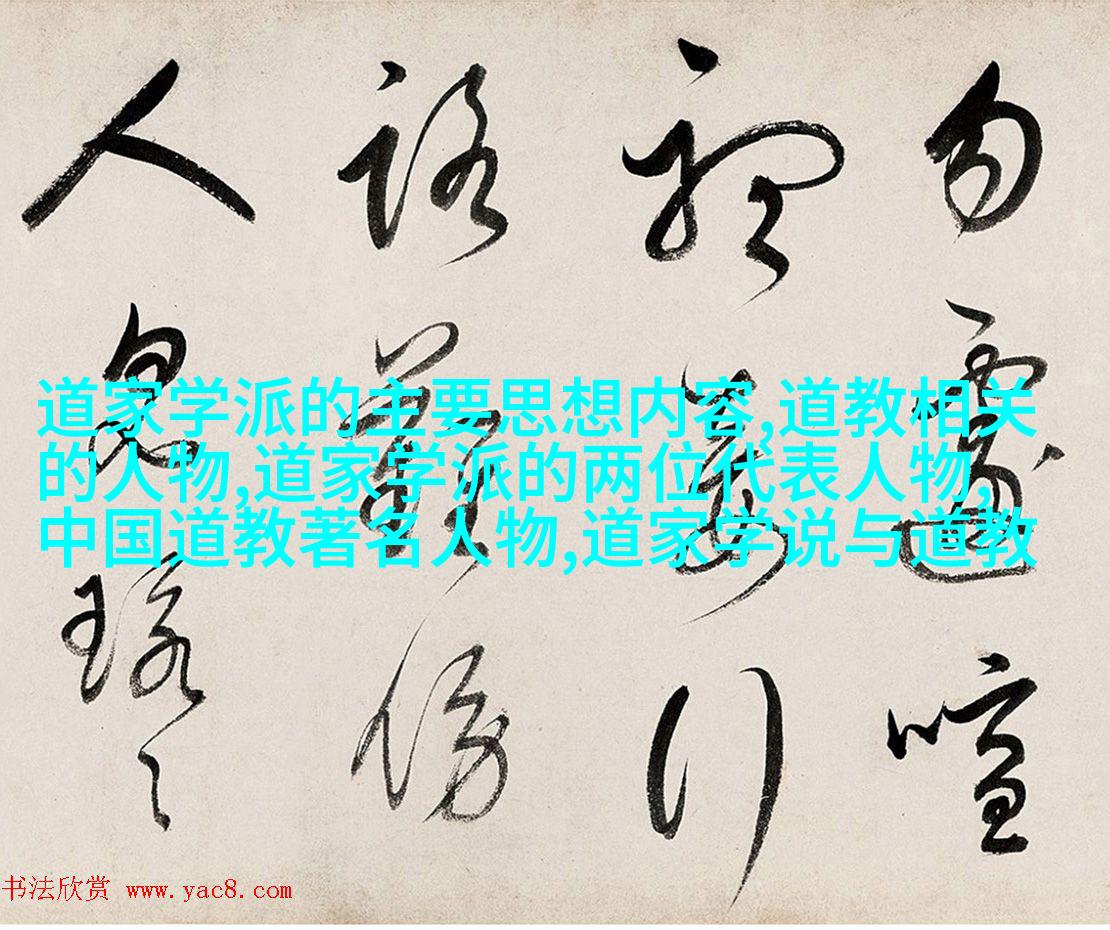 道家学派的主要思想内容,道教相关
的人物,道家学派的两位代表人物,
中国道教著名人物,道家学说与道教
勿遽喧
行
路難傍
人
书法欣赏 www.yac8.com